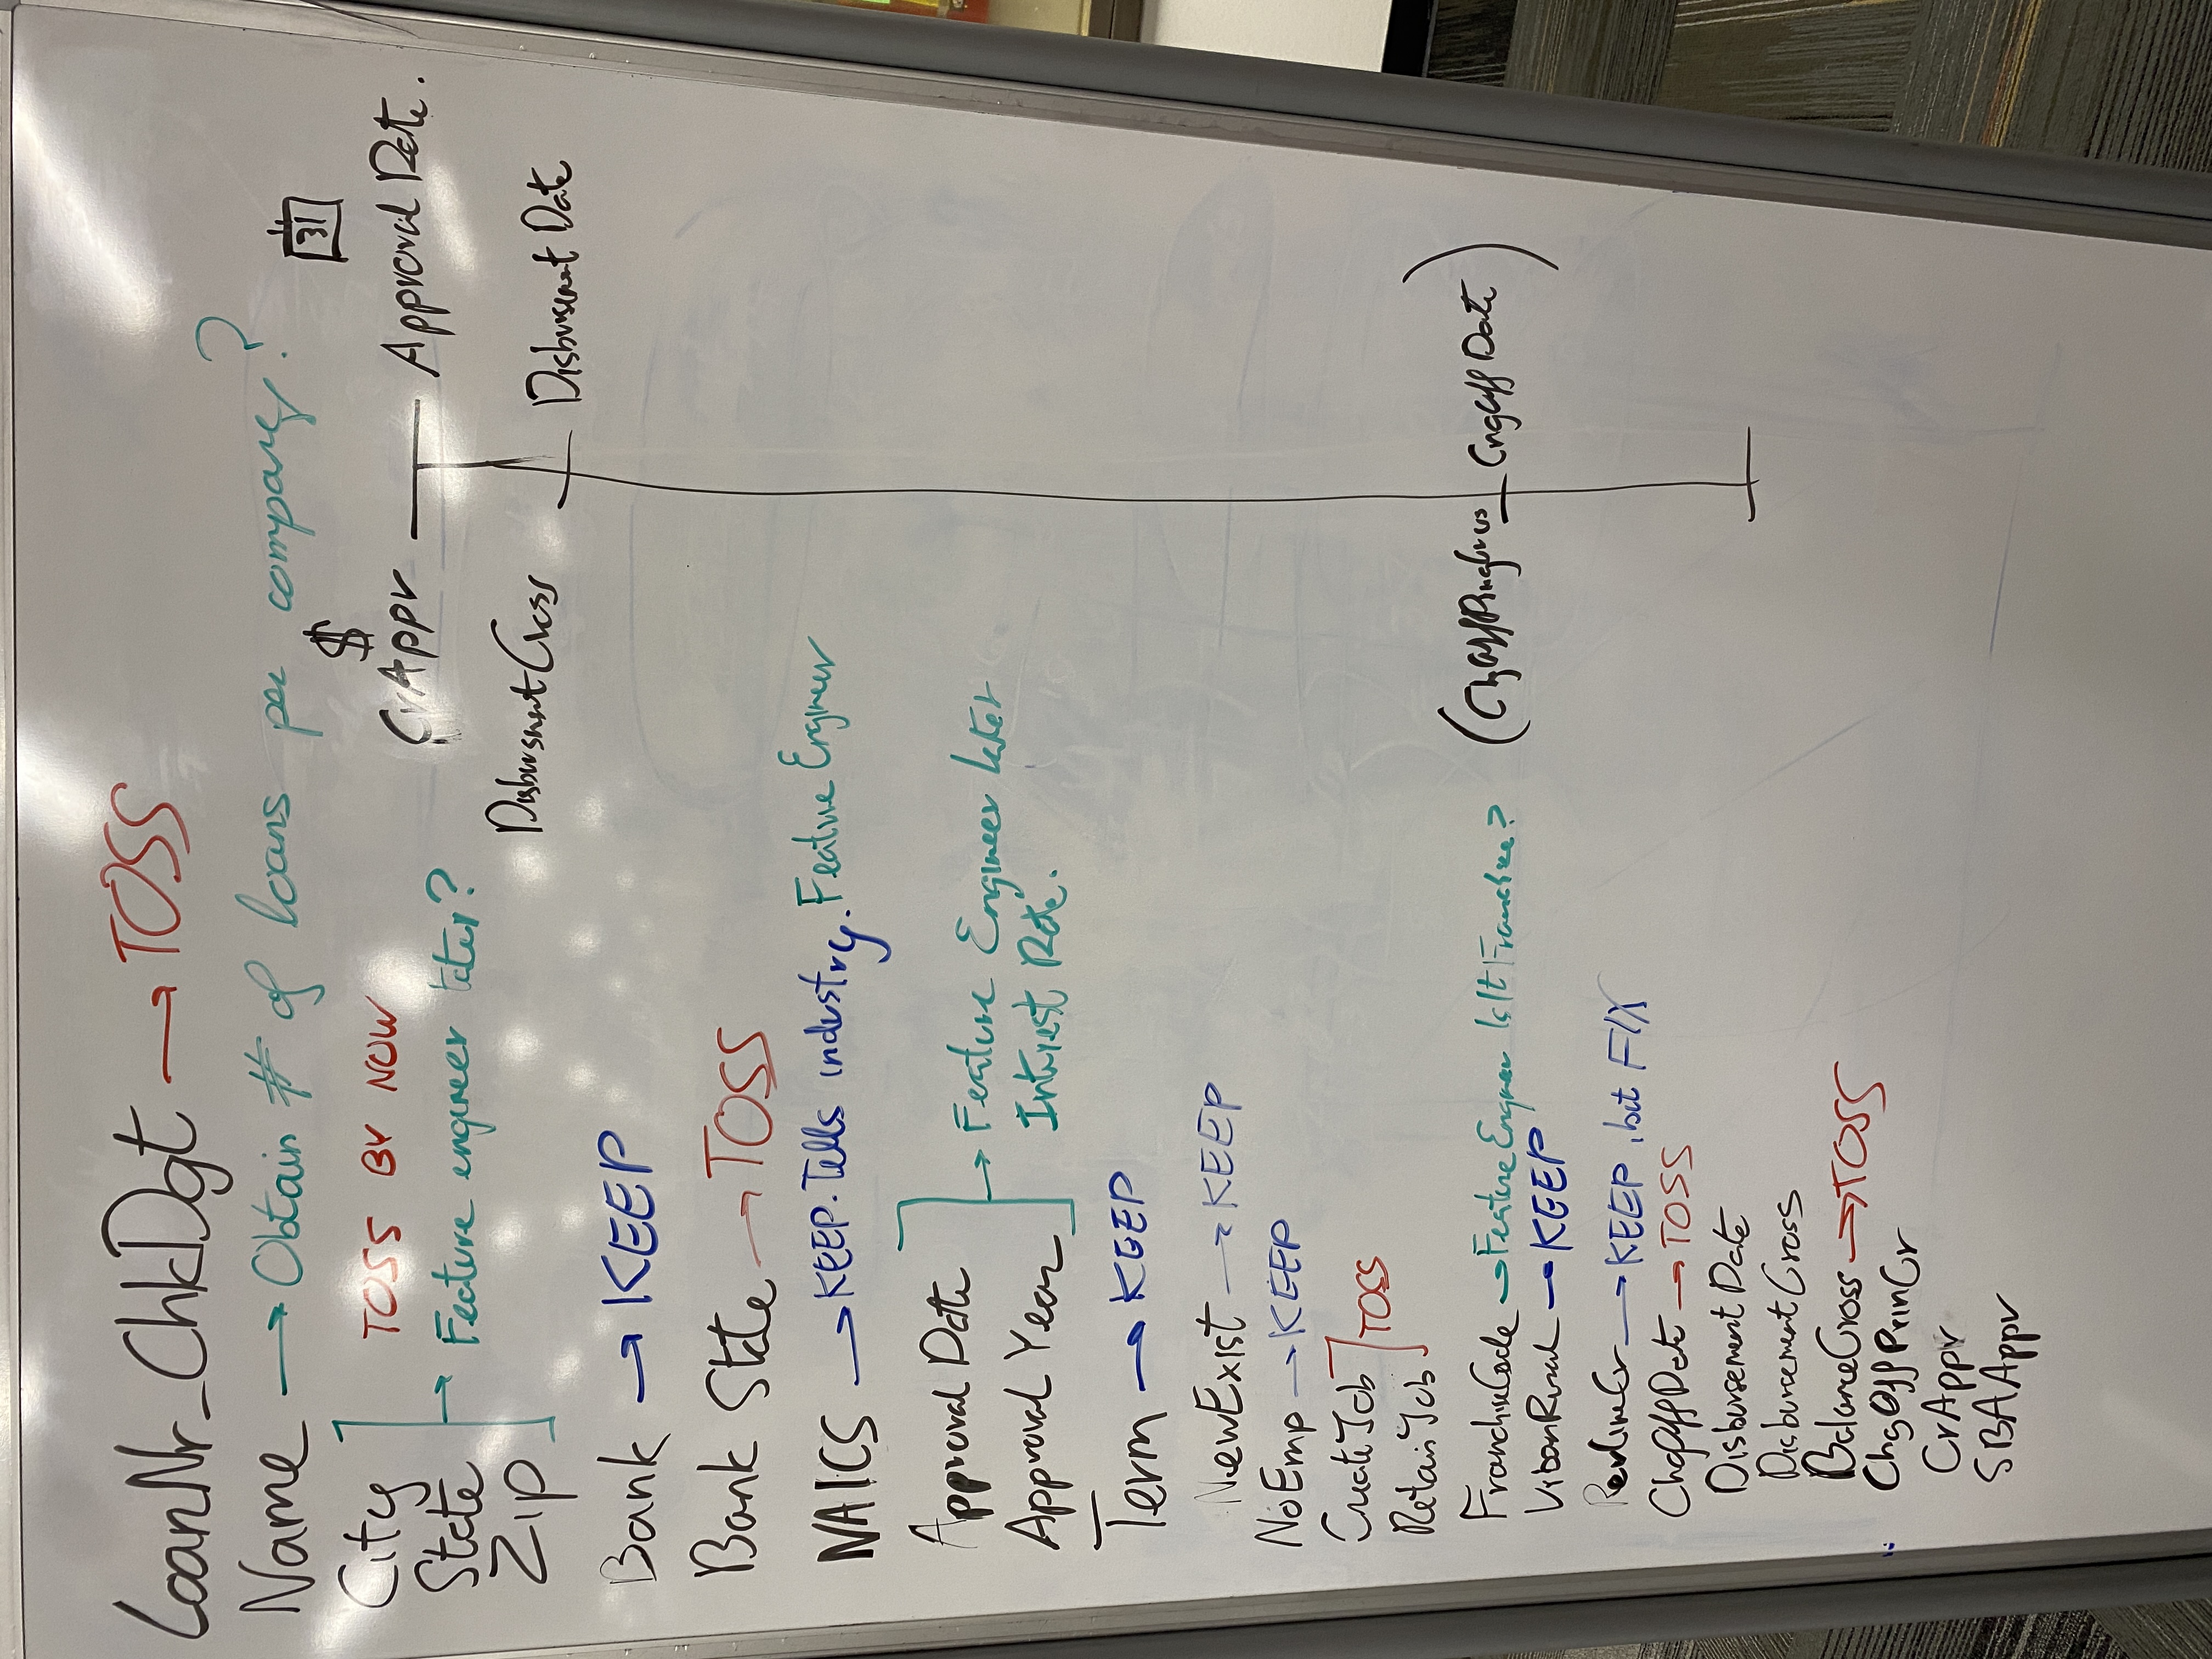 LoanNr_ChkDgt → TOSS
Name → Obtain # of loans per company?
City
State
Zip
TOSS BY NOW
→ Feature engineer later?
Bank → KEEP
Bank State → TOSS
NAICS → KEEP. Tells industry. Feature Engineer
Approval Date
Approval Year
→ Feature Engineer later
Interest Rate.
Term → KEEP
NewExist → KEEP
NoEmp → KEEP
CreateJob
RetainJob
TOSS
FranchiseCode → Feature Engineer Is It Franchise?
UrbanRural → KEEP
RevLineCr → KEEP, but FIX
ChgOffDate → TOSS
Disbursement Date
Disbursement Gross
BalanceGross → TOSS
ChgOffPrinGr
CrAppr
SBAAppr
$
31
CrAppr
Approval Date.
Disbursment Gross
Disbursement Date
ChgOff Date